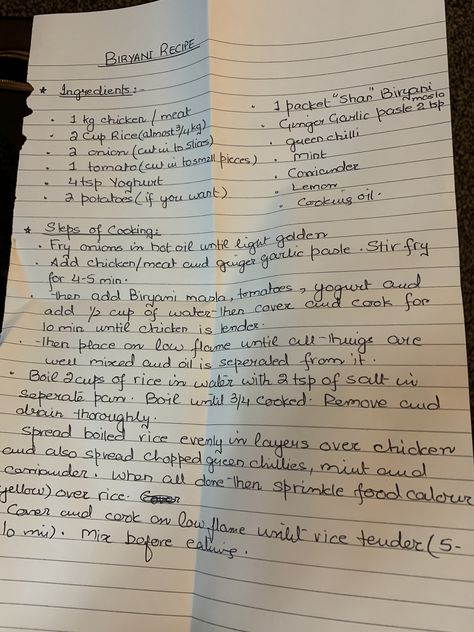 BIRYANI RECIPE
* Ingredients:-
• 1 kg chicken/meat
• 2 Cup Rice (almost 3/4 kg)
• 2 onion (cut in to slices)
• 1 tomato (cut in to small pieces)
• 4 tsp Yoghurt
• 2 potatoes (if you want)
• 1 packet "Shan" Biryani masla
• Ginger Garlic paste 2 tsp
• green chilli
• Mint
• Coriander
• Lemon
• Cooking oil.
* Steps of Cooking:
• Fry onions in hot oil until light golden
• Add chicken/meat and ginger garlic paste. Stir fry
for 4-5 min.
• Then add Biryani masla, tomatoes, yogurt and
add 1/2 cup of water then cover and cook for
10 min until chicken is tender.
• Then place on low flame until all things are
well mixed and oil is seperated from it.
• Boil 2 cups of rice in water with 2 tsp of salt in
seperate pan. Boil until 3/4 cooked. Remove and
drain thoroughly.
Spread boiled rice evenly in layers over chicken
and also spread chopped green chillies, mint and
corriander. When all done then sprinkle food colour
yellow) over rice.
Cover and cook on low flame until rice tender (5-
10 min). Mix before eating.